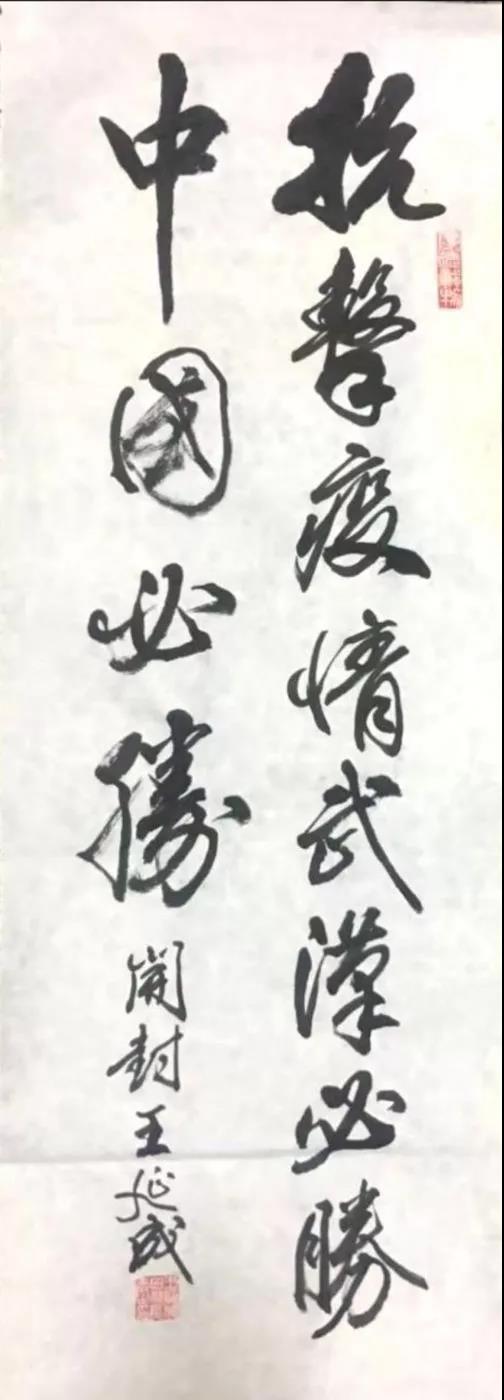 抗擊疫情武漢必勝
中國必勝
開封王延成